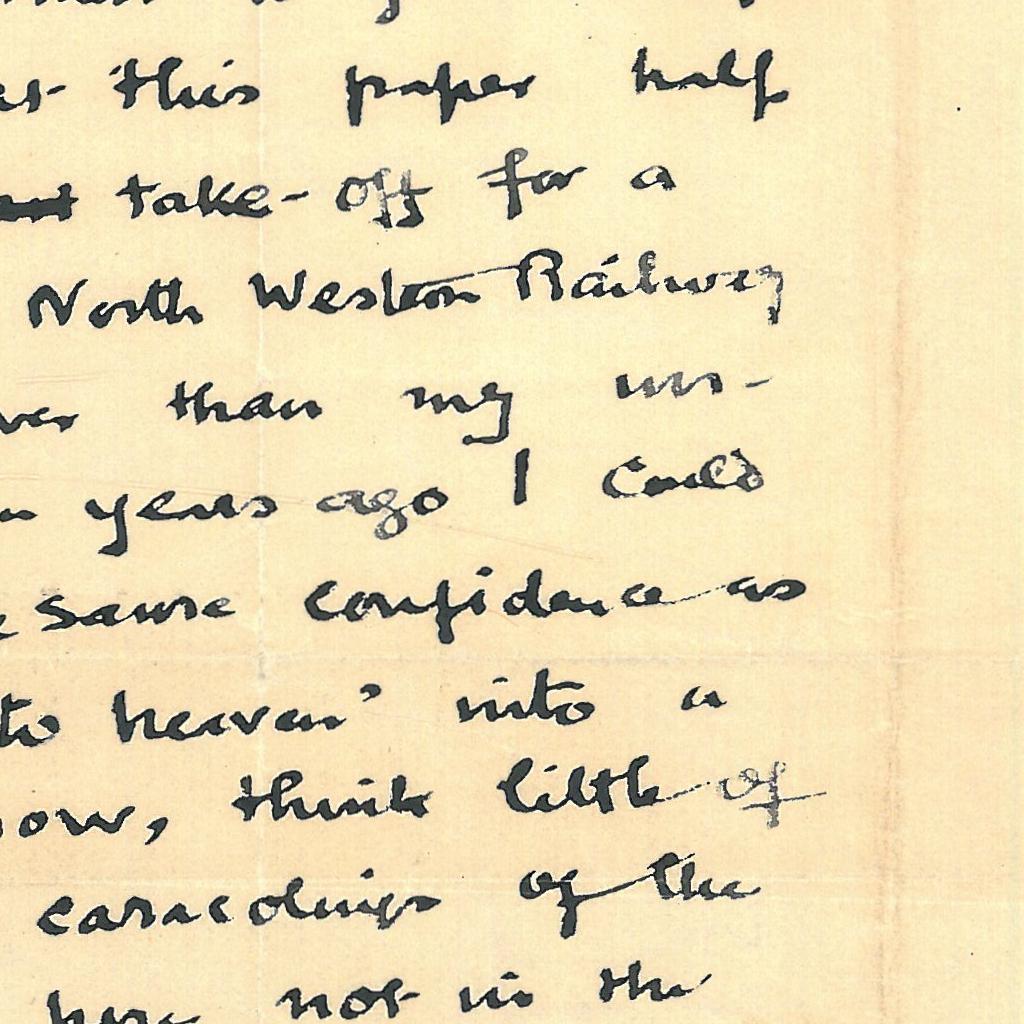 this paper half
take-off for a
North Western Railway
than my un-
years ago I could
same confidence as
to heaven' into a
now, think little of
caracolings of the
here not in the